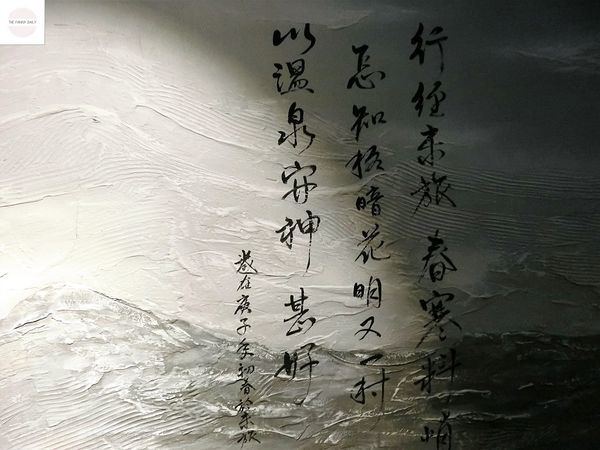 THE FUNNIY DAILY
行經東旅 春寒料峭
怎知柳暗花明又一村
以溫泉安神 甚好
庚子年初春於東旅